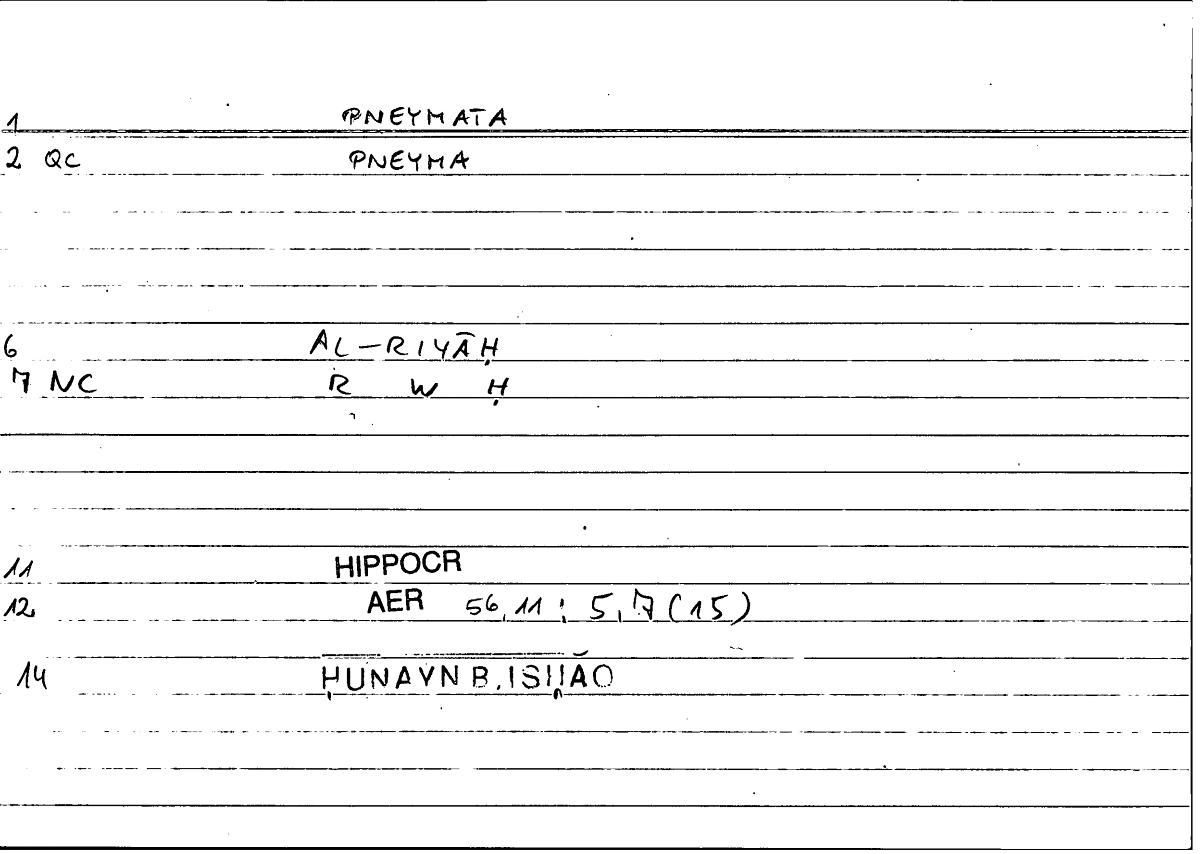 1 PNEYMATA
2 QC PNEYMA
6 AL-RIYĀḤ
7 NC R W Ḥ
11 HIPPOCR
12 AER 56,11; 5,7 (15)
14 ḤUNAYN B. ISḤĀQ